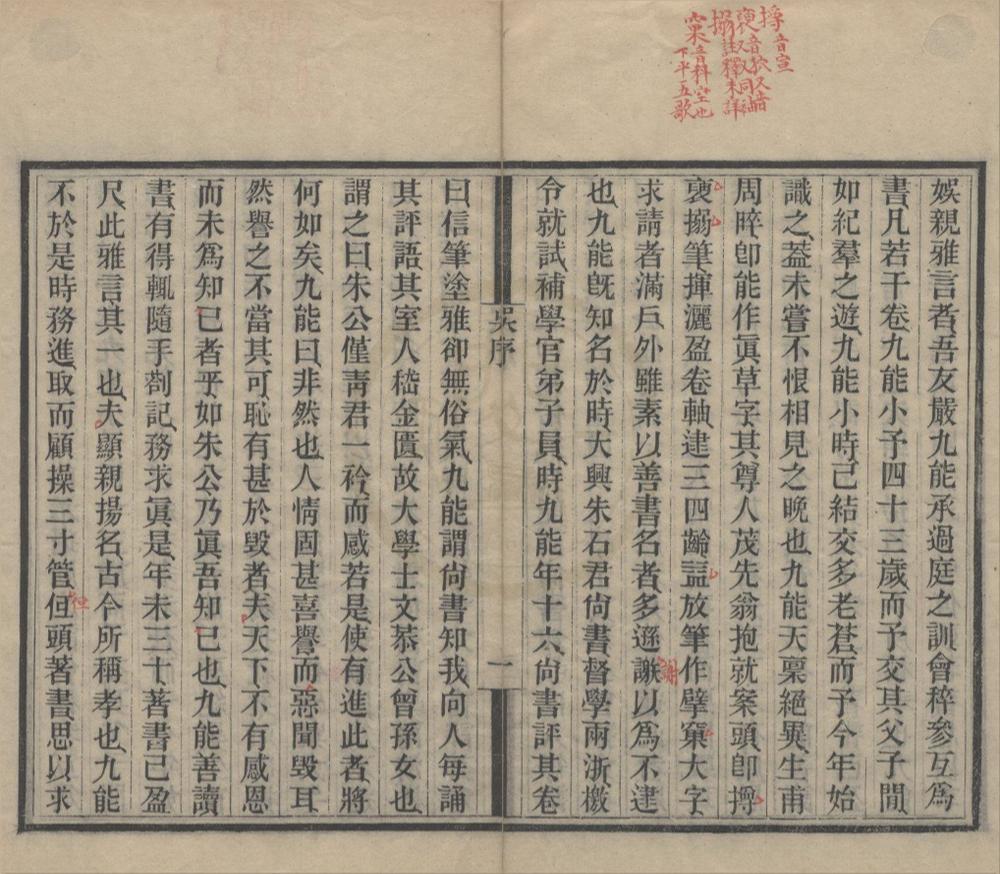 摶音宣
褏音於又音
又又同袖
搦註釋未詳
窠音科空也
下平五歌
娛親雅言者吾友嚴九能承過庭之訓會稡參互爲
書凡若干卷九能小予四十三歲而予交其父子閒
如紀羣之遊九能小時已結交多老蒼而予今年始
識之葢未嘗不恨相見之晚也九能天稟絕異生甫
周晬卽能作眞草字其尊人茂先翁抱就案頭卽摶
褏搦筆揮灑盈卷軸逮三四齡諨放筆作擘窠大字
求請者滿戶外雖素以善書名者多遜謝以爲不逮
也九能旣知名於時大興朱石君尙書督學兩浙檄
令就試補學官弟子員時九能年十六尙書評其卷
吳序
一
曰信筆塗雅卻無俗氣九能謂尙書知我向人每誦
其評語其室人嵇金匱故大學士文恭公曾孫女也
謂之曰朱公僅靑君一衿而感若是使有進此者將
何如矣九能曰非然也人情固甚喜譽而惡聞毀耳
然譽之不當其可恥有甚於毀者夫天下不有感恩
而未爲知己者乎如朱公乃眞吾知己也九能善讀
書有得輒隨手劄記務求眞是年未三十著書已盈
尺此雅言其一也夫顯親揚名古今所稱孝也九能
不於是時務進取而顧操三寸管伹頭著書思以求
謝
但